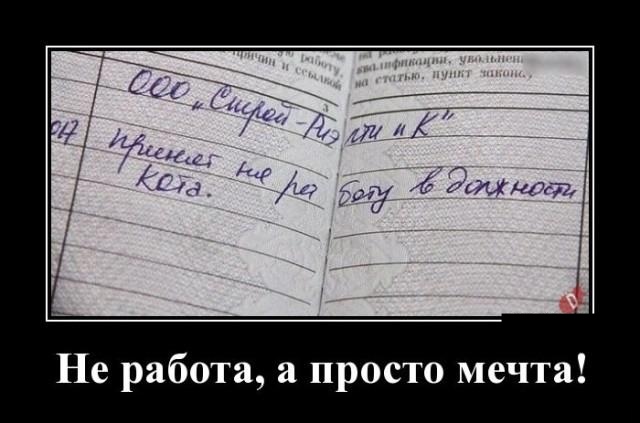 ую работу,
причин и ссылкой
квалификации, увольнени
на статью, пункт закона,
3
ООО „Строй-Риэлти и К"
017 Принят на работу в должности
Кота.
D
Не работа, а просто мечта!